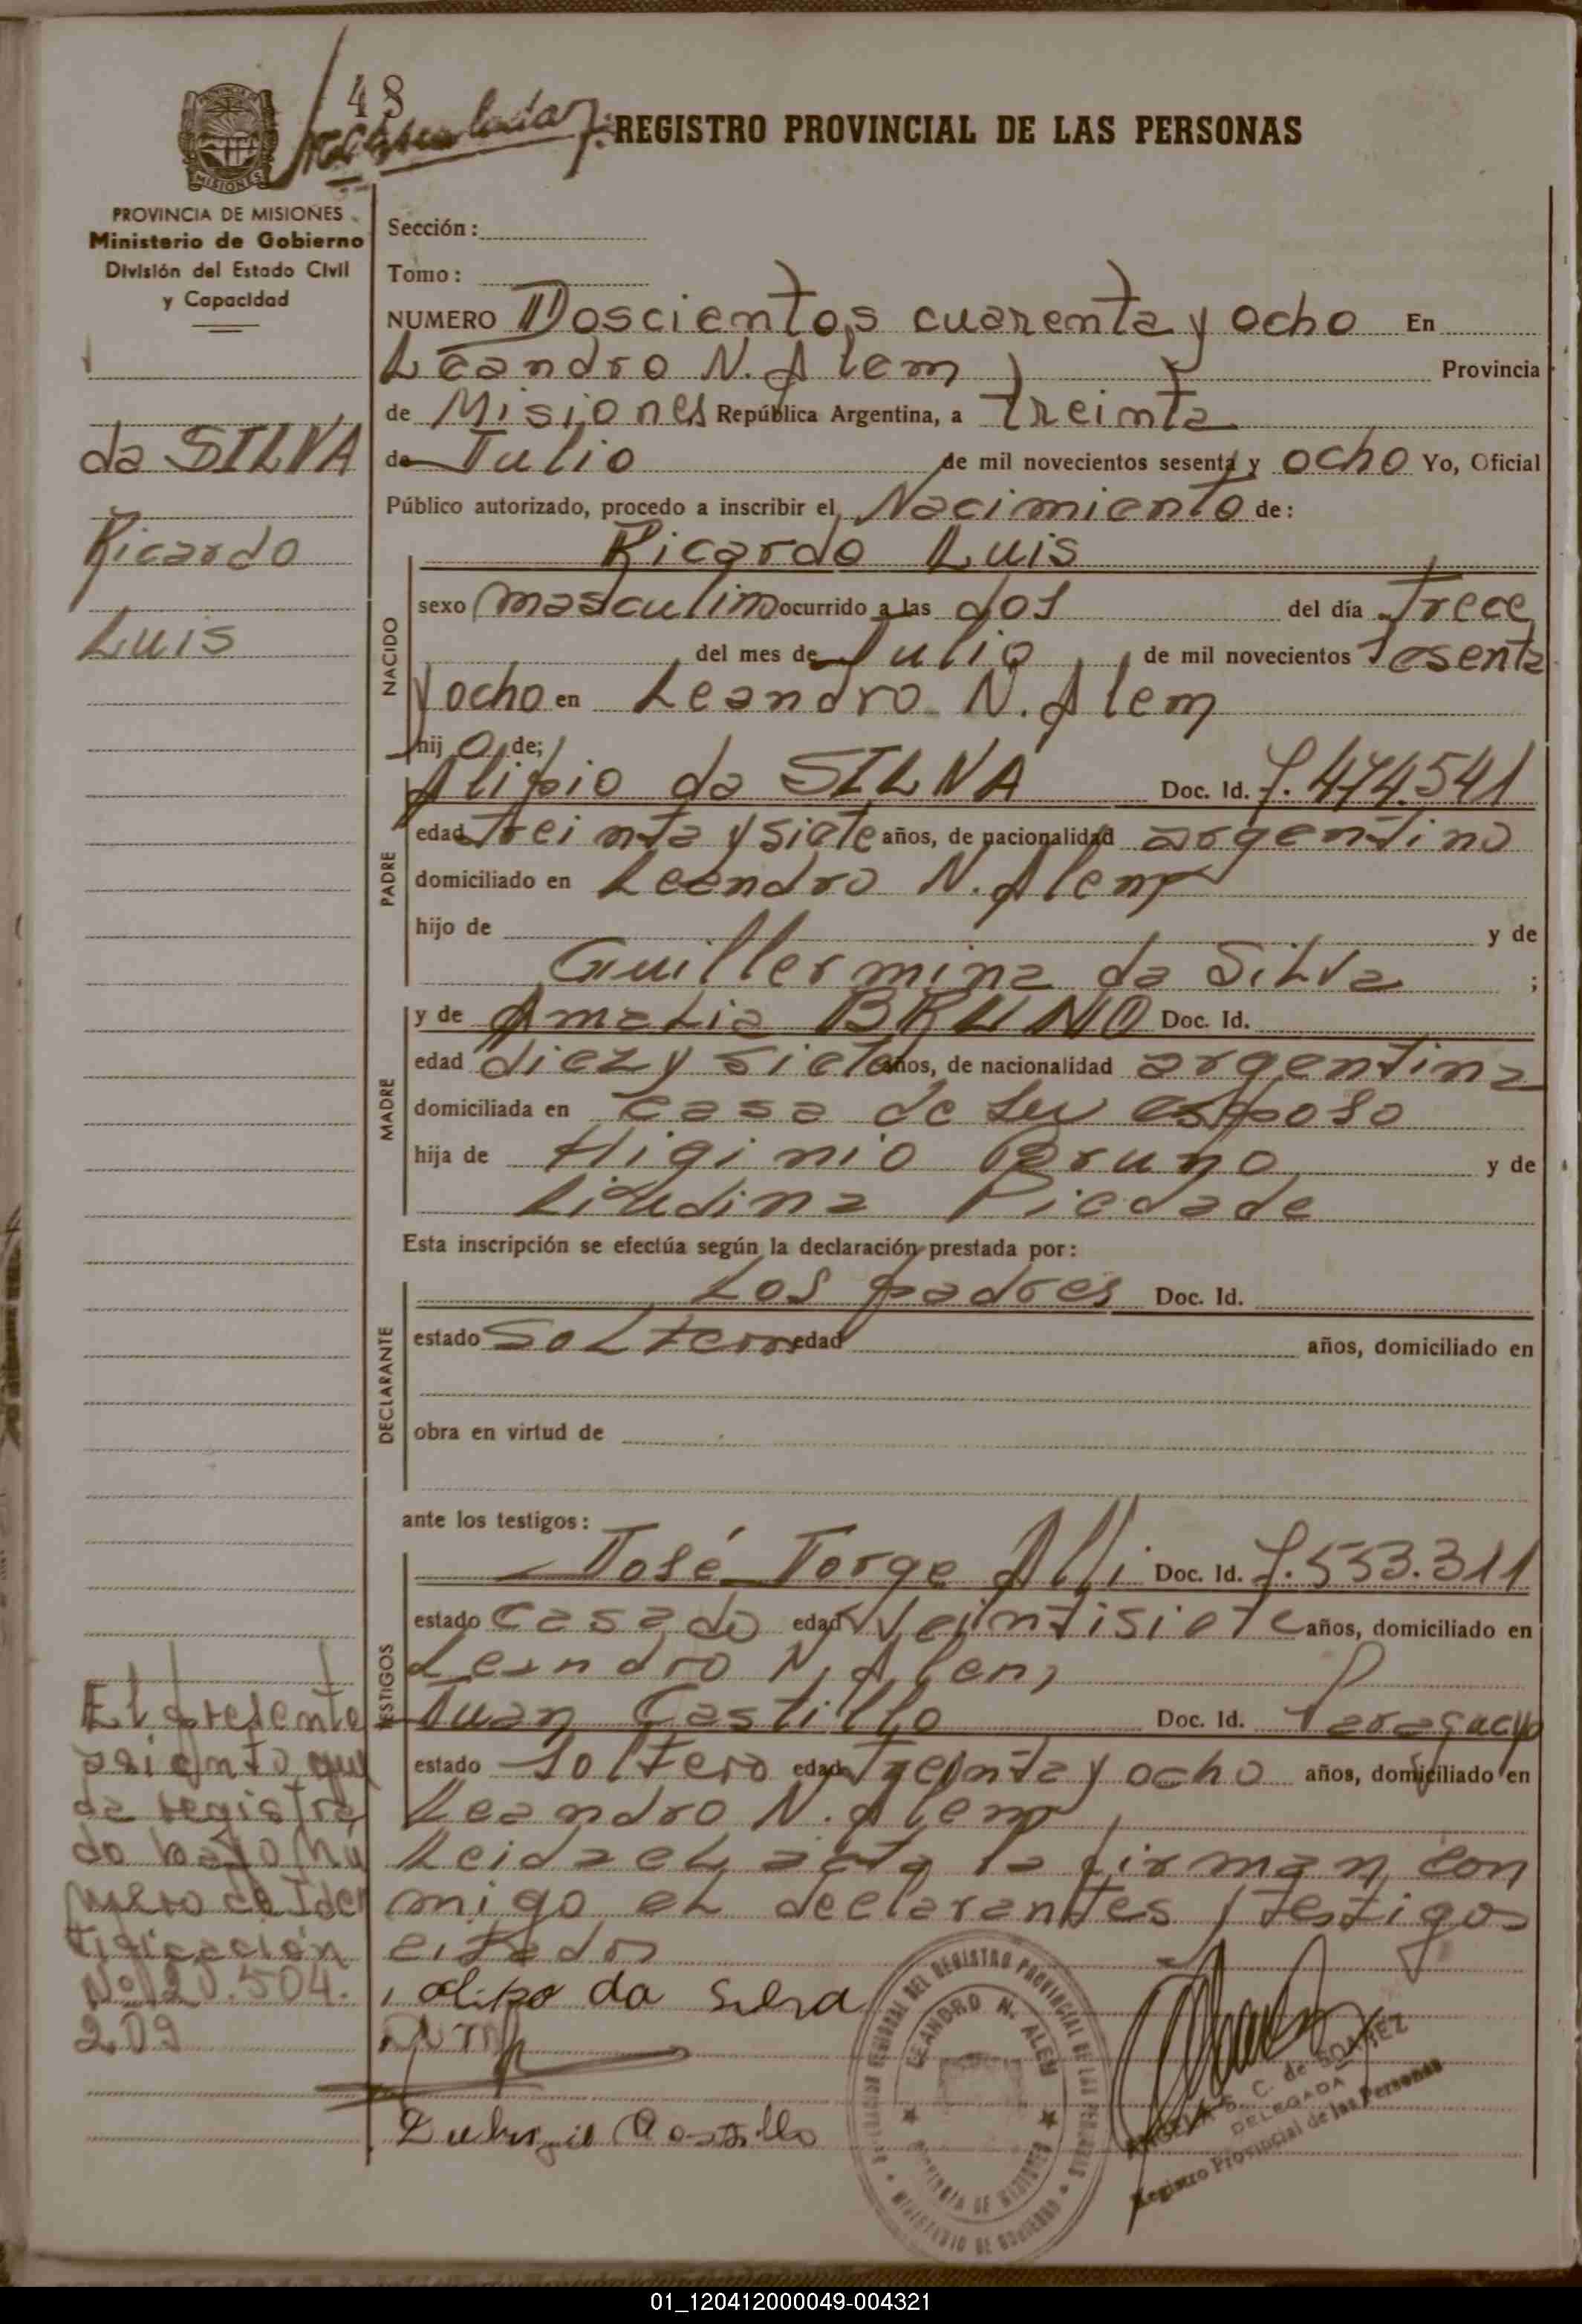 48
REGISTRO PROVINCIAL DE LAS PERSONAS
PROVINCIA DE MISIONES
Ministerio de Gobierno
División del Estado Civil
y Capacidad
da SILVA
Ricardo
Luis
Sección:
Tomo:
NUMERO Doscientos cuarenta y ocho En
Leandro N. Alem, Provincia
de Misiones República Argentina, a treinta
de Julio de mil novecientos sesenta y ocho Yo, Oficial
Público autorizado, procedo a inscribir el Nacimiento de:
NACIDO
Ricardo Luis
sexo masculino ocurrido a las dos del día Trece
del mes de Julio de mil novecientos sesenta
y ocho en Leandro N. Alem
hij o de;
PADRE
Alipio da SILVA Doc. Id. 7.474.541
edad treinta y siete años, de nacionalidad argentino
domiciliado en Leandro N. Alem
hijo de y de
Guillermina da Silva ;
MADRE
y de Amalia BRUNO Doc. Id.
edad diez y siete años, de nacionalidad argentina
domiciliada en casa de su esposo
hija de Higinio Bruno y de
Piedade
Esta inscripción se efectúa según la declaración prestada por:
DECLARANTE
Los padres Doc. Id.
estado Solteros edad años, domiciliado en
obra en virtud de
ante los testigos:
TESTIGOS
José Jorge Alli Doc. Id. 7.553.311
estado casado edad veintisiete años, domiciliado en
Leandro N. Alem,
Juan Castillo Doc. Id. Paraguayo
estado soltero edad treinta y ocho años, domiciliado en
Leandro N. Alem
Leida el acta la firman con
migo el declarantes y testigos
citados
El presente
asiento que
da registra
do bajo Nú
mero de Iden
tificación
Nº 20.504.
209
da Silva
Castillo
DIRECCION GENERAL DEL REGISTRO PROVINCIAL DE LAS PERSONAS
LEANDRO N. ALEM
PROVINCIA DE MISIONES
MINISTERIO DE GOBIERNO
ANGELA S. C. de SOAREZ
DELEGADA
Registro Provincial de las Personas
01_120412000049-004321